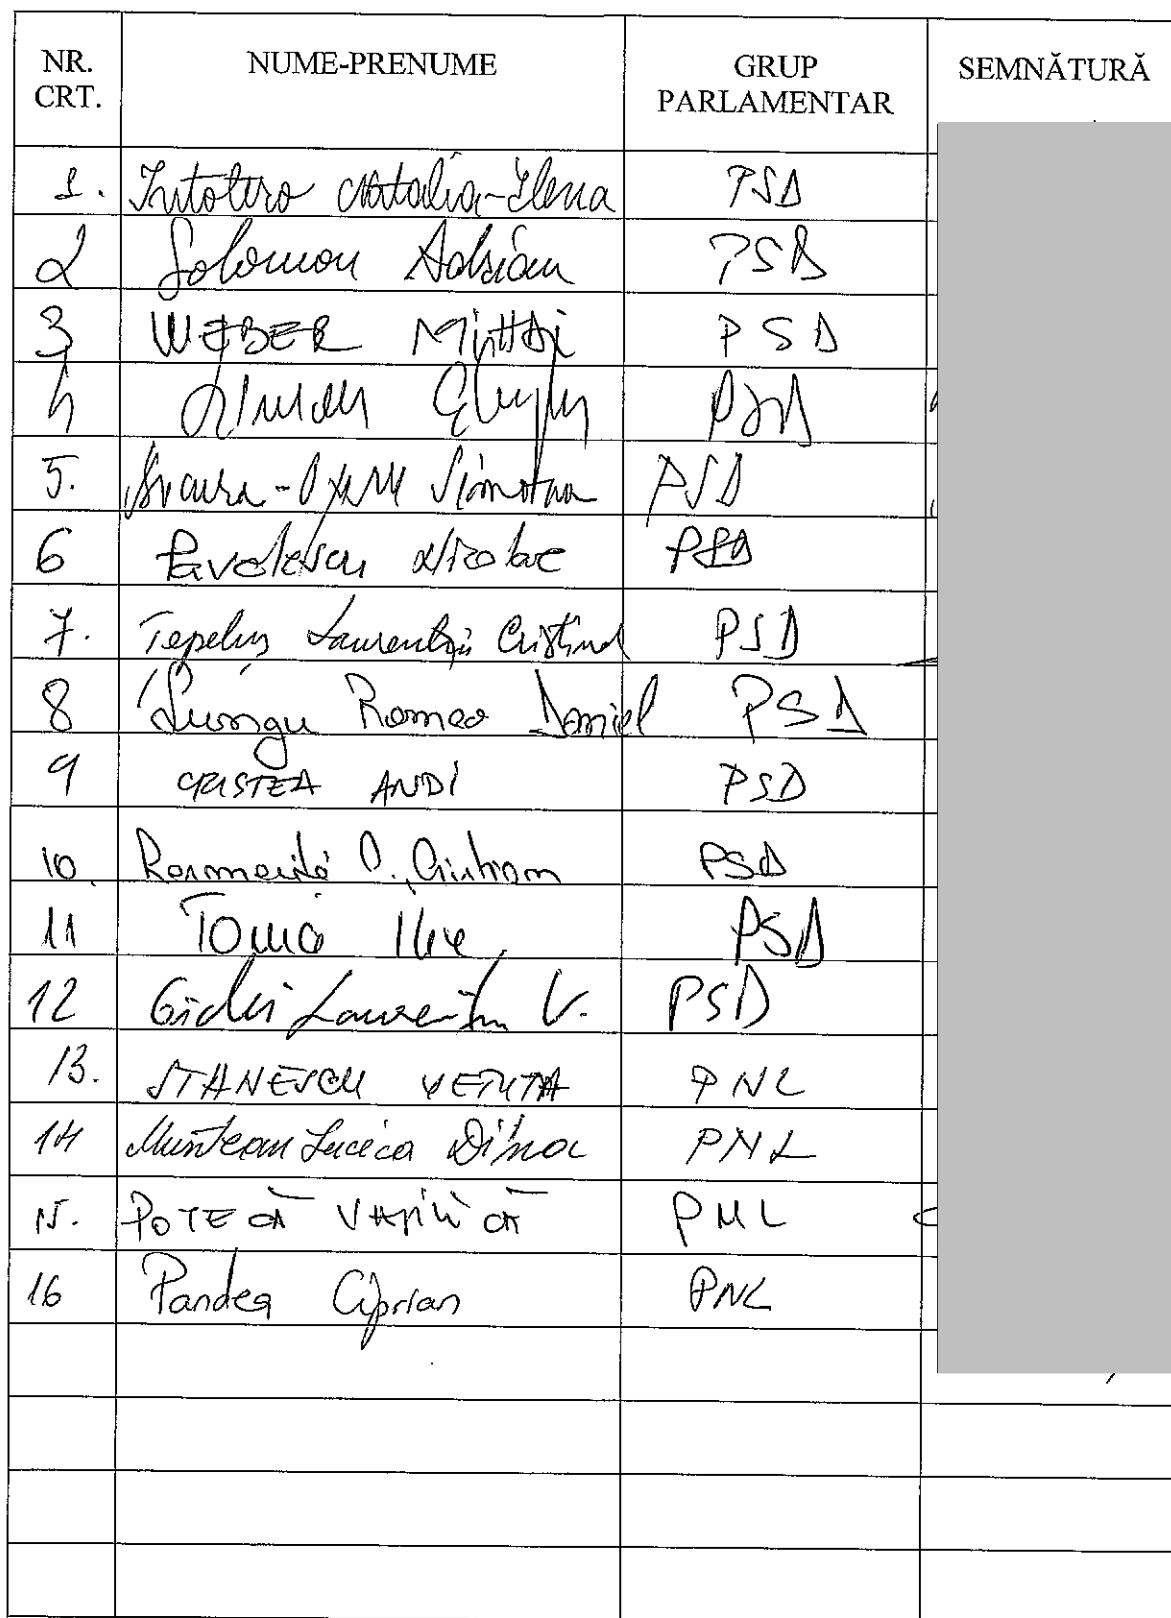 NR. CRT. NUME-PRENUME GRUP PARLAMENTAR SEMNĂTURĂ
1. Intotero Natalia-Elena PSD
2 Solomon Adrian PSD
3 WEBER MIHAI PSD
4 PSD
5. Simona PSD
6 Pavelescu Nicolae PSD
7. Țepeluș Laurențiu Cristinel PSD
8 Lungu Romeo Daniel PSD
9 CRISTEA ANDI PSD
10. PSD
11 Toma Ilie PSD
12 Gîdei Laurențiu V. PSD
13. STANESCU VETUTA PNL
14 Muntean Lucica Dina PNL
15. POTECĂ VASILICĂ PNL
16 Pandea Ciprian PNL